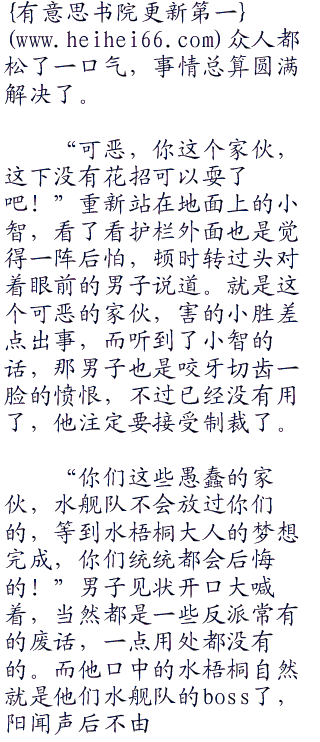 {有意思书院更新第一}
(www.heihei66.com)众人都
松了一口气，事情总算圆满
解决了。
“可恶，你这个家伙，
这下没有花招可以耍了
吧！”重新站在地面上的小
智，看了看护栏外面也是觉
得一阵后怕，顿时转过头对
着眼前的男子说道。就是这
个可恶的家伙，害的小胜差
点出事，而听到了小智的
话，那男子也是咬牙切齿一
脸的愤恨，不过已经没有用
了，他注定要接受制裁了。
“你们这些愚蠢的家
伙，水舰队不会放过你们
的，等到水梧桐大人的梦想
完成，你们统统都会后悔
的！”男子见状开口大喊
着，当然都是一些反派常有
的废话，一点用处都没有
的。而他口中的水梧桐自然
就是他们水舰队的boss了，
阳闻声后不由